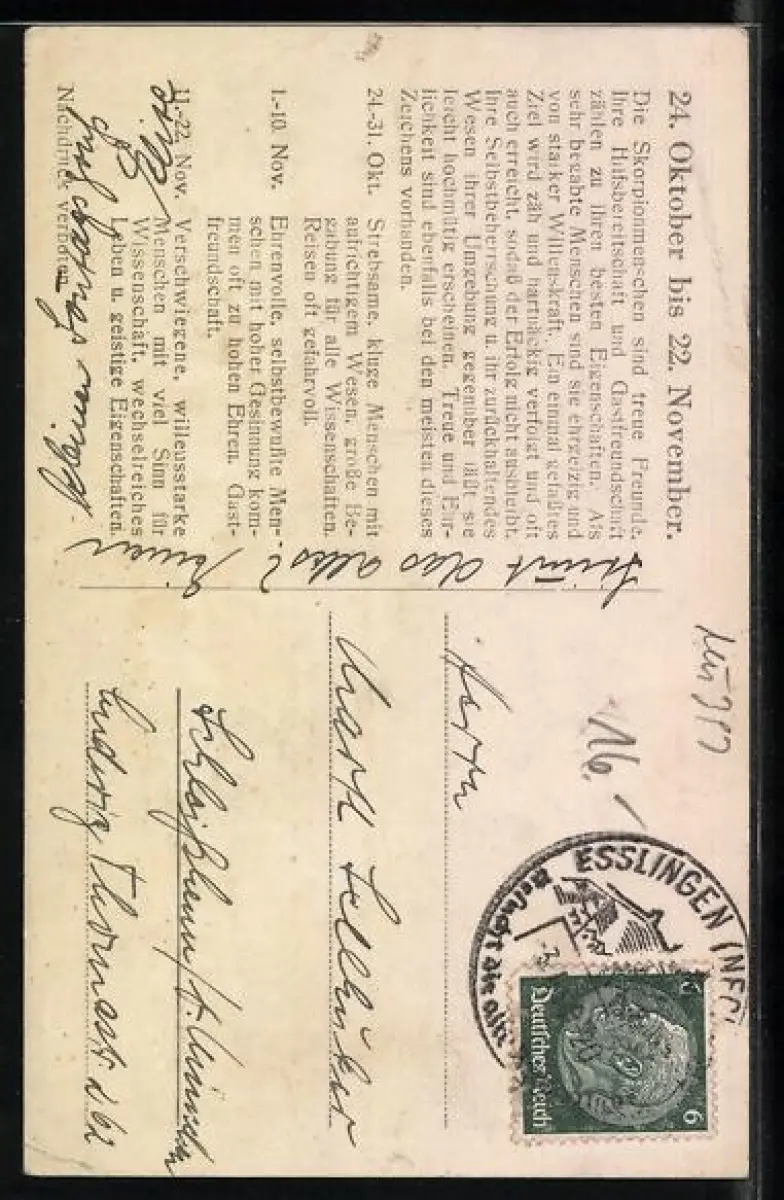 24. Oktober bis 22. November.
Die Skorpionmenschen sind treue Freunde.
Ihre Hilfsbereitschaft und Gastfreundschaft
zählen zu ihren besten Eigenschaften. Als
sehr begabte Menschen sind sie ehrgeizig und
von starker Willenskraft. Ein einmal gefaßtes
Ziel wird zäh und hartnäckig verfolgt und oft
auch erreicht, sodaß der Erfolg nicht ausbleibt.
Ihre Selbstbeherrschung u. ihr zurückhaltendes
Wesen ihrer Umgebung gegenüber läßt sie
leicht hochmütig erscheinen. Treue und Ehr-
lichkeit sind ebenfalls bei den meisten dieses
Zeichens vorhanden.
24.-31. Okt. Strebsame, kluge Menschen mit
aufrichtigem Wesen, große Be-
gabung für alle Wissenschaften.
Reisen oft gefahrvoll.
1.-10. Nov. Ehrenvolle, selbstbewußte Men-
schen mit hoher Gesinnung kom-
men oft zu hohen Ehren. Gast-
freundschaft.
11.-22. Nov. Verschwiegene, willensstarke
Menschen mit viel Sinn für
Wissenschaft, wechselreiches
Leben u. geistige Eigenschaften.
Nachdruck verboten.
stimmt das alles?
16.
ESSLINGEN (NEC
Besucht die alte
Deutsches Reich
6
Herrn
Schleißheim / b. München
Ludwig Thomastr